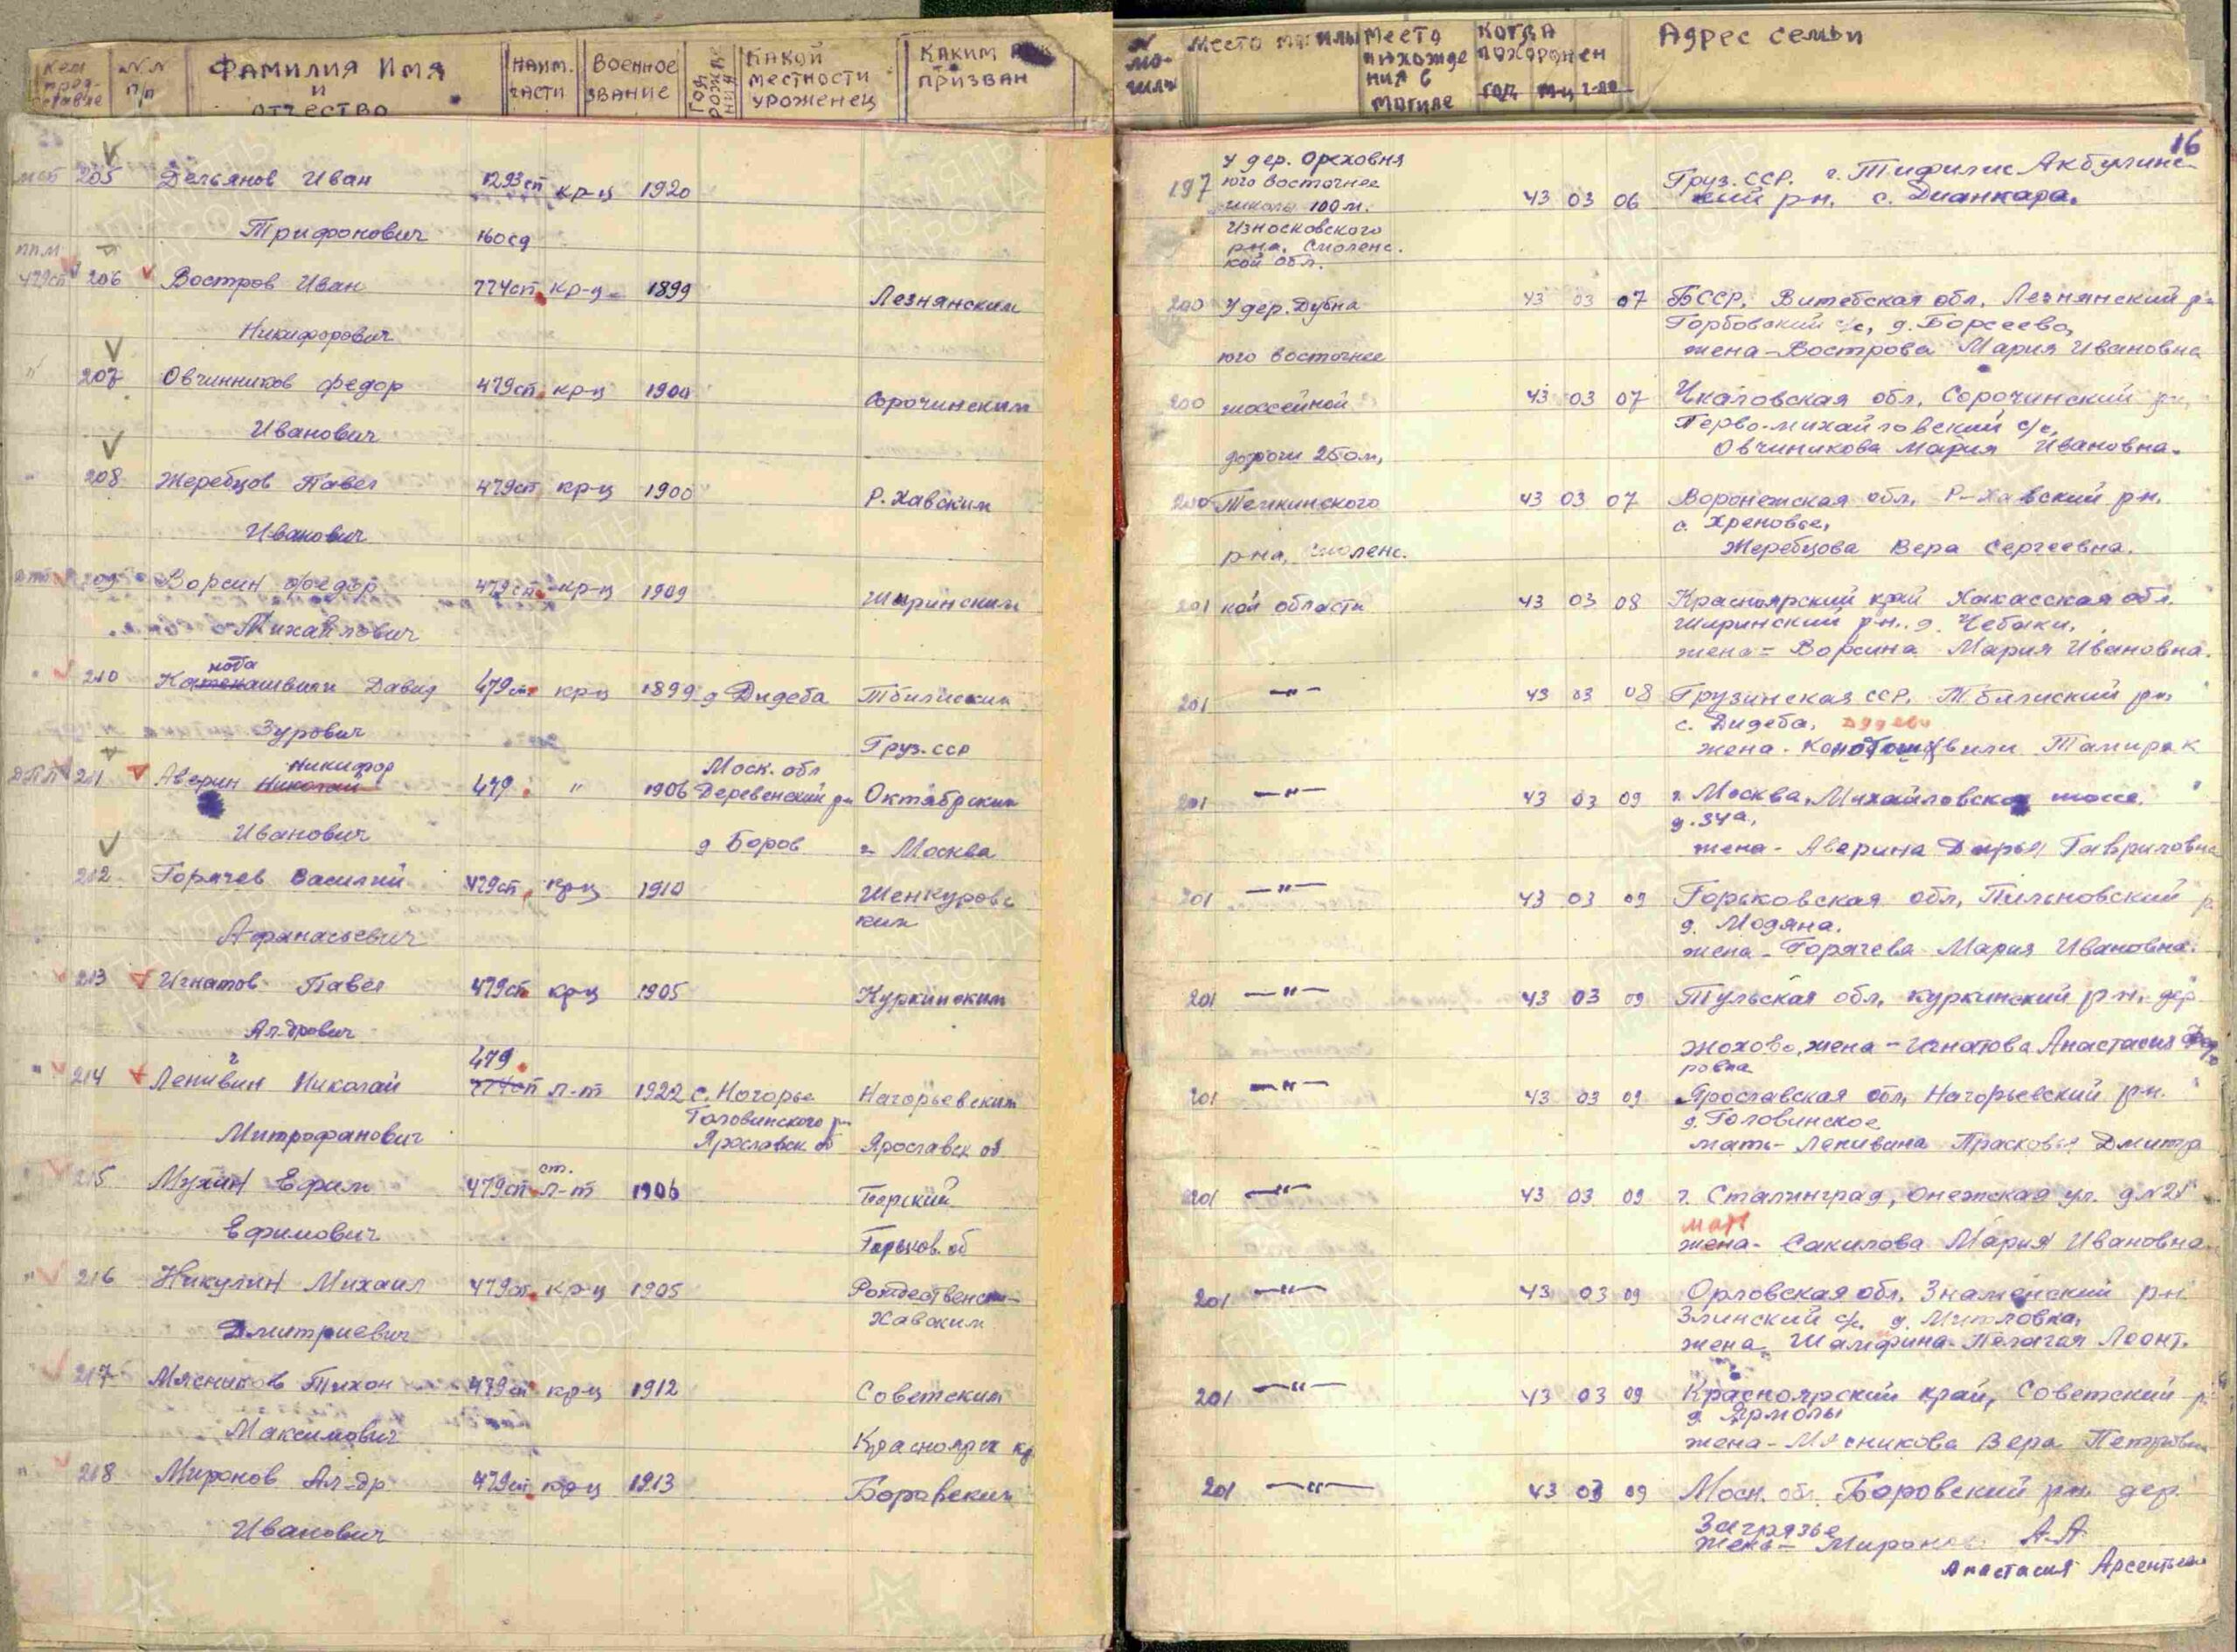 Кем
пред-
ставле
N.N
п/п
ФАМИЛИЯ ИМЯ
и
ОТЧЕСТВО
НАИМ.
ЧАСТИ
ВОЕННОЕ
ЗВАНИЕ
ГОД
РОЖДЕ
НИЯ
КАКОЙ
МЕСТНОСТИ
УРОЖЕНЕЦ
КАКИМ
ПРИЗВАН
205 Дельянов Иван 1293сп кр-ц 1920
Трифонович 160сд
ппм
479сп 206 Востров Иван 774сп кр-ц 1899 Лезнянским
Никифорович
" 207 Овчинников Федор 479сп кр-ц 1900 Сорочинским
Иванович
" 208 Жеребцов Павел 479сп кр-ц 1900 Р. Хавским
Иванович
209 Ворсин Федор 479сп кр-ц 1909 Ширинским
Михайлович
" 210 Каженашвили Давид 479сп кр-ц 1899 д Дидеба Тбилиским
Зурович Груз. сср
Никифор Моск. обл
211 Аверин Николай 479 " 1906 Деревенский рн Октябрским
Иванович д Боров г Москва
212 Горячев Василий 479сп кр-ц 1910 Шенкуровс
ким
Афанасьевич
213 Игнатов Павел 479сп кр-ц 1905 Куркинским
Ал-дрович
479
" 214 Ленивин Николай 774сп л-т 1922 с. Ногорье Нагорьевским
Головинского рн
Митрофанович Ярославск об Ярославск об
ст.
215 Мухин Ефим 479сп л-т 1906 Борский
Ефимович Горьков. об
" 216 Никулин Михаил 479сп кр-ц 1905 Рождественско-
Хавским
Дмитриевич
" 217 Мясников Тихон 479сп кр-ц 1912 Советским
Максимович Красноярск кр
" 218 Миронов Ал-др 479сп кр-ц 1913 Боровским
Иванович
N
мо-
гилы
Место могилы
Место
нахожде
ния в
могиле
Когда
похоронен
год м-ц ч-ло
Адрес семьи
16
197 У дер. Ореховня
юго восточнее
школы 100м.
Износковского
рна. Смоленс.
кой обл.
43 03 06 Груз. ССР. г. Тифилис Акбулинс
кий рн. с. Дианкара.
200 У дер. Дубна 43 03 07 БССР, Витебская обл, Лезнянский р
Горбовский с/с, д. Борсеево,
юго восточнее жена-Вострова Мария Ивановна
200 шоссейной 43 03 07 Чкаловская обл, Сорочинский рн,
Перво-михайловский с/с,
дороги 250м, Овчиникова Мария Ивановна.
200 Темкинского 43 03 07 Воронежская обл, Р-Хавский рн.
с. Хреновое,
рна, Смоленс. Жеребцова Вера Сергеевна.
201 кой области 43 03 08 Красноярский край Хакасская обл.
Ширинский рн., д. Чебаки,
жена= Ворсина Мария Ивановна.
201 —"— 43 03 08 Грузинская ССР, Тбилиский рн
с. Дидеба,
жена.
201 —"— 43 03 09 г. Москва, Михайловское шоссе.
д. 34а,
жена- Аверина Дарья Гавриловна
201 —"— 43 03 09 Горьковская обл, Пильновский р
д. Модяна.
жена-Горячева Мария Ивановна.
201 —"— 43 03 09 Тульская обл, куркинский рн, дер
Жохово, жена-Игнатова Анастасия Федо
ровна
201 —"— 43 03 09 Ярославская обл, Нагорьевский рн.
д. Головинское
мать- Ленивина Прасковья Дмитр
201 —"— 43 03 09 г. Сталинград, Онежская ул. д N21
жена- Сакилова Мария Ивановна
201 —"— 43 03 09 Орловская обл, Знаменский рн
Злинский с/с,
жена Пелагея Леонт.
201 —"— 43 03 09 Красноярский край, Советский р
д. Ярмолы
жена-Мясникова Вера Петровн
201 —"— 43 03 09 Моск. обл. Боровский рн. дер.
Загрязье
жена- Миронов А.А
Анастасия Арсентьевн